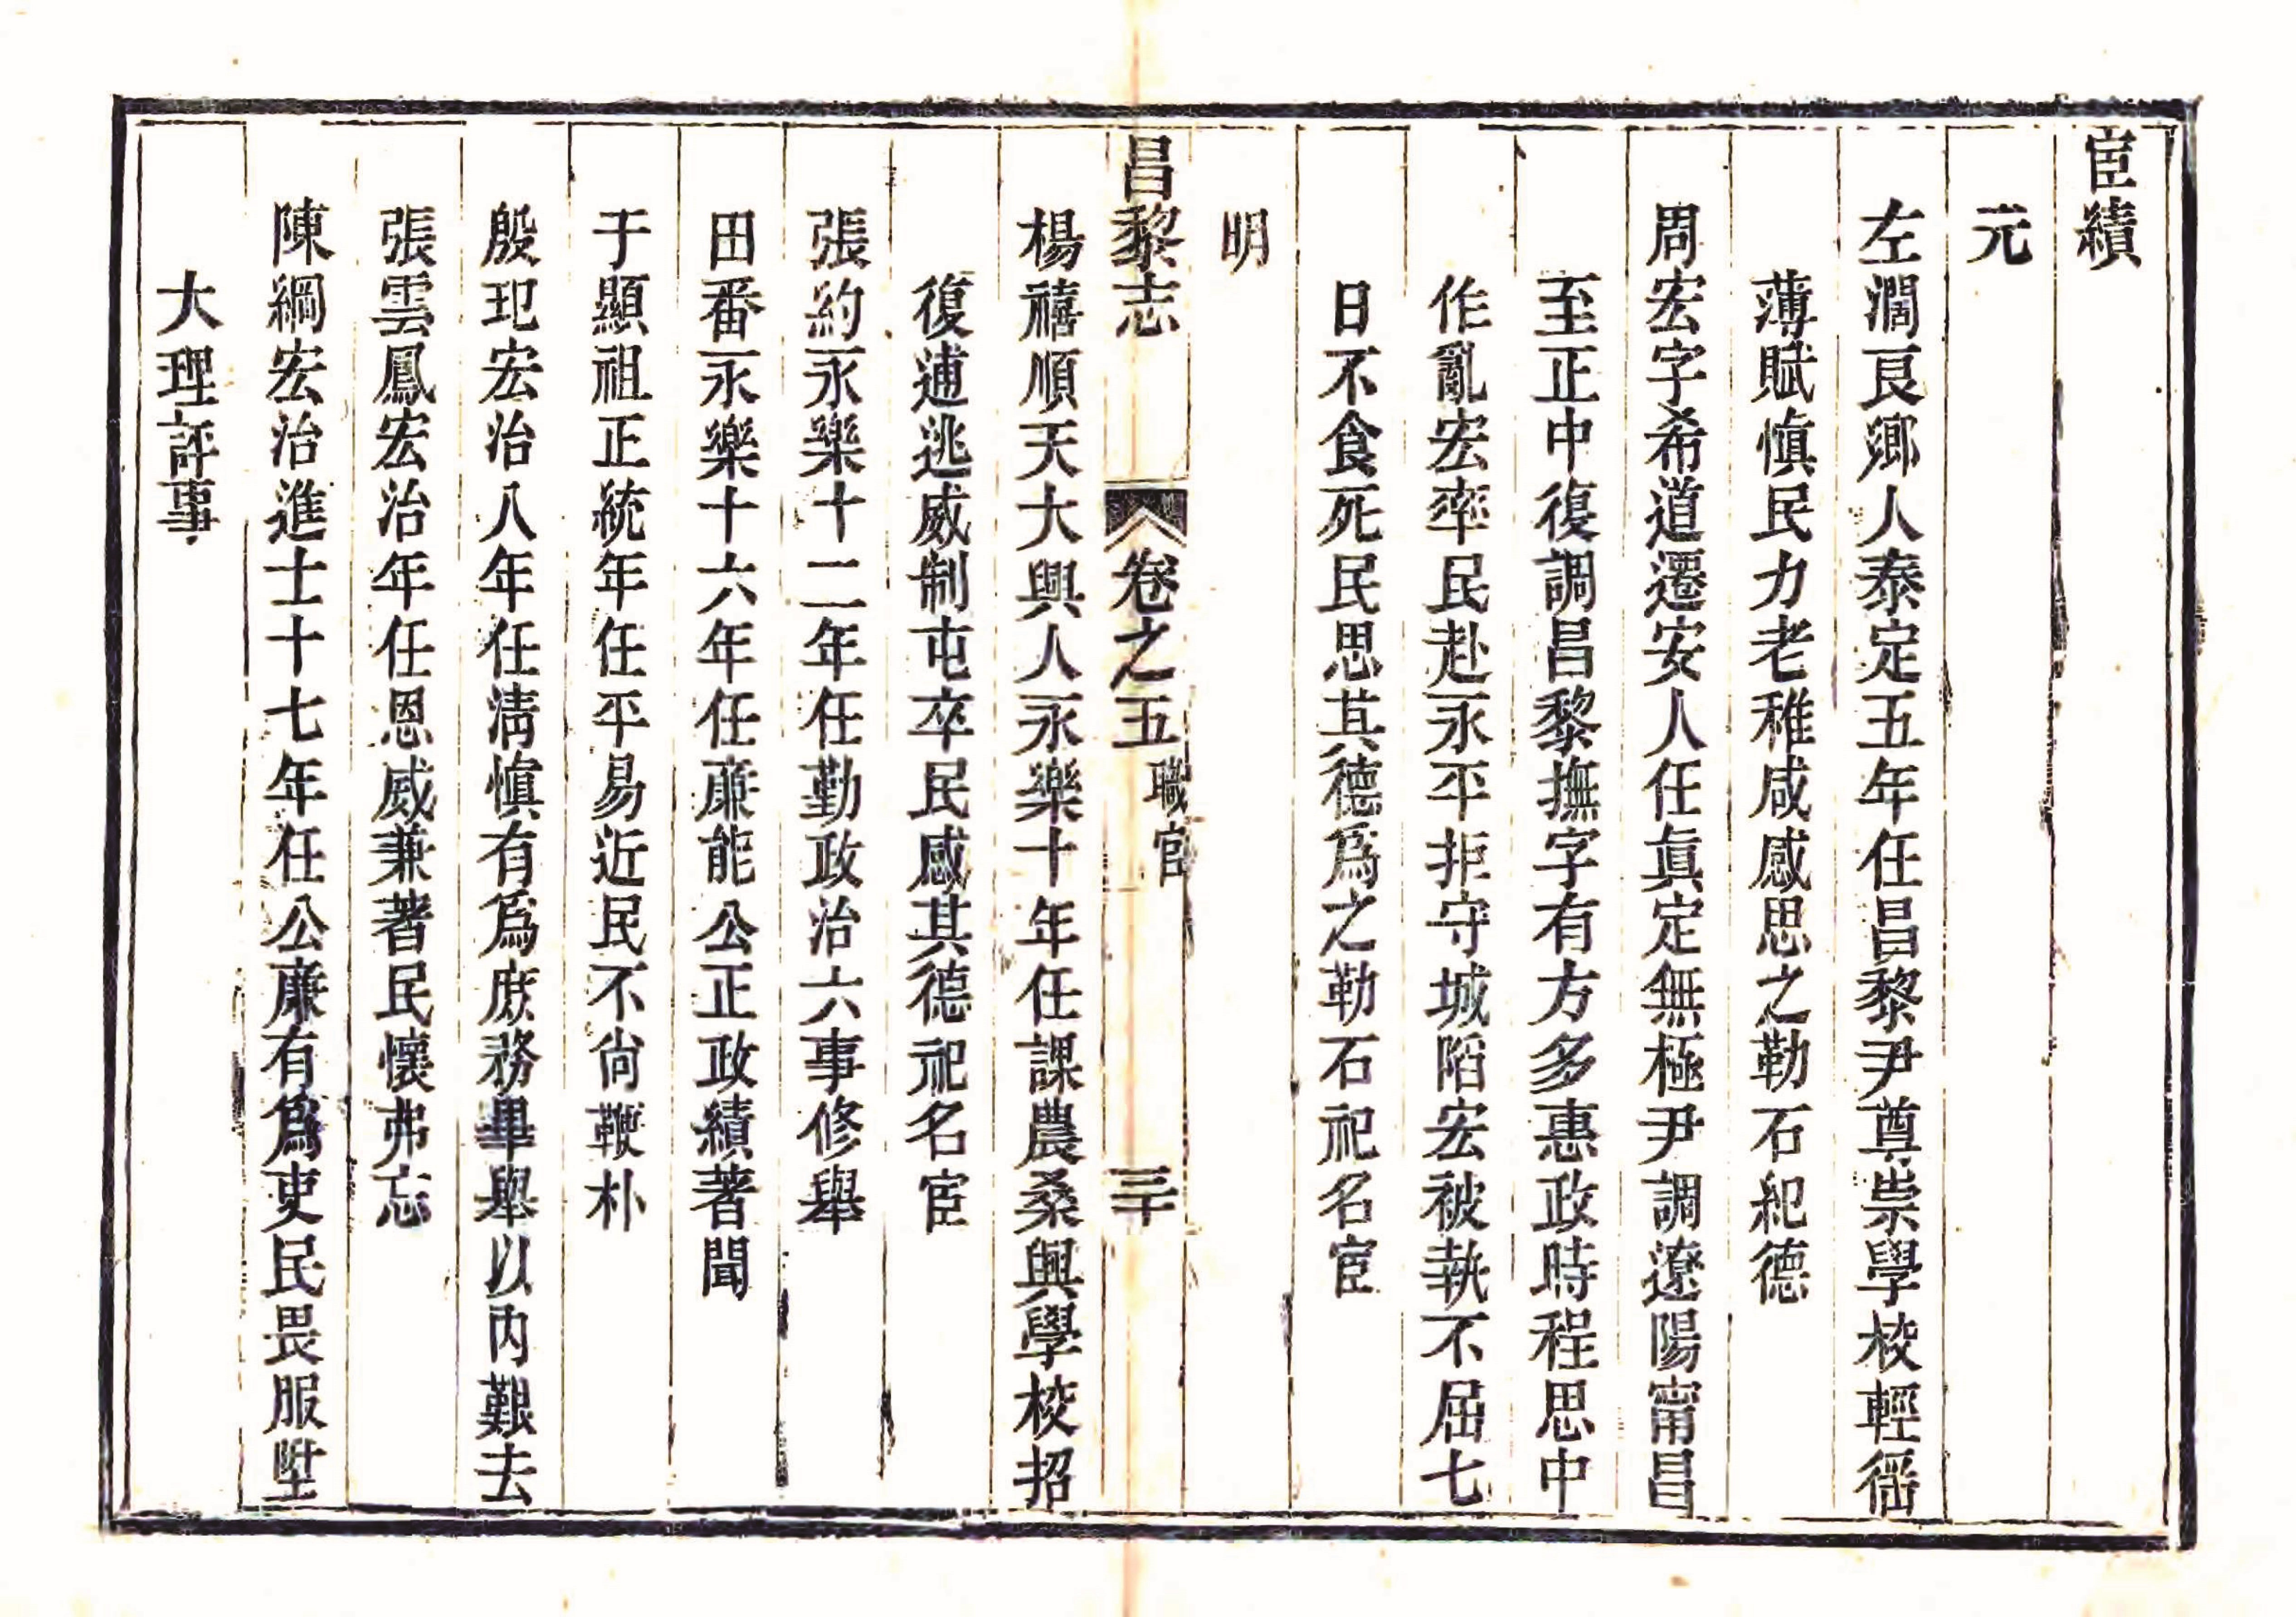 宦績
元
左濶良鄉人泰定五年任昌黎尹尊崇學校輕徭
薄賦慎民力老稚咸感思之勒石紀德
周宏字希道遷安人任眞定無極尹調遼陽甯昌
至正中復調昌黎撫字有方多惠政時程思中
作亂宏率民赴永平拒守城陷宏被執不屈七
日不食死民思其德爲之勒石祀名宦
明
昌黎志 卷之五 職官 三十
楊禧順天大興人永樂十年任課農桑興學校招
復逋逃威制屯卒民感其德祀名宦
張約永樂十二年任勤政治六事修舉
田番永樂十六年任廉能公正政績著聞
于顯祖正統年任平易近民不尚鞭朴
殷玘宏治八年任淸慎有爲庶務畢舉以內艱去
張雲鳳宏治年任恩威兼著民懷弗忘
陳綱宏治進士十七年任公廉有爲吏民畏服陞
大理評事